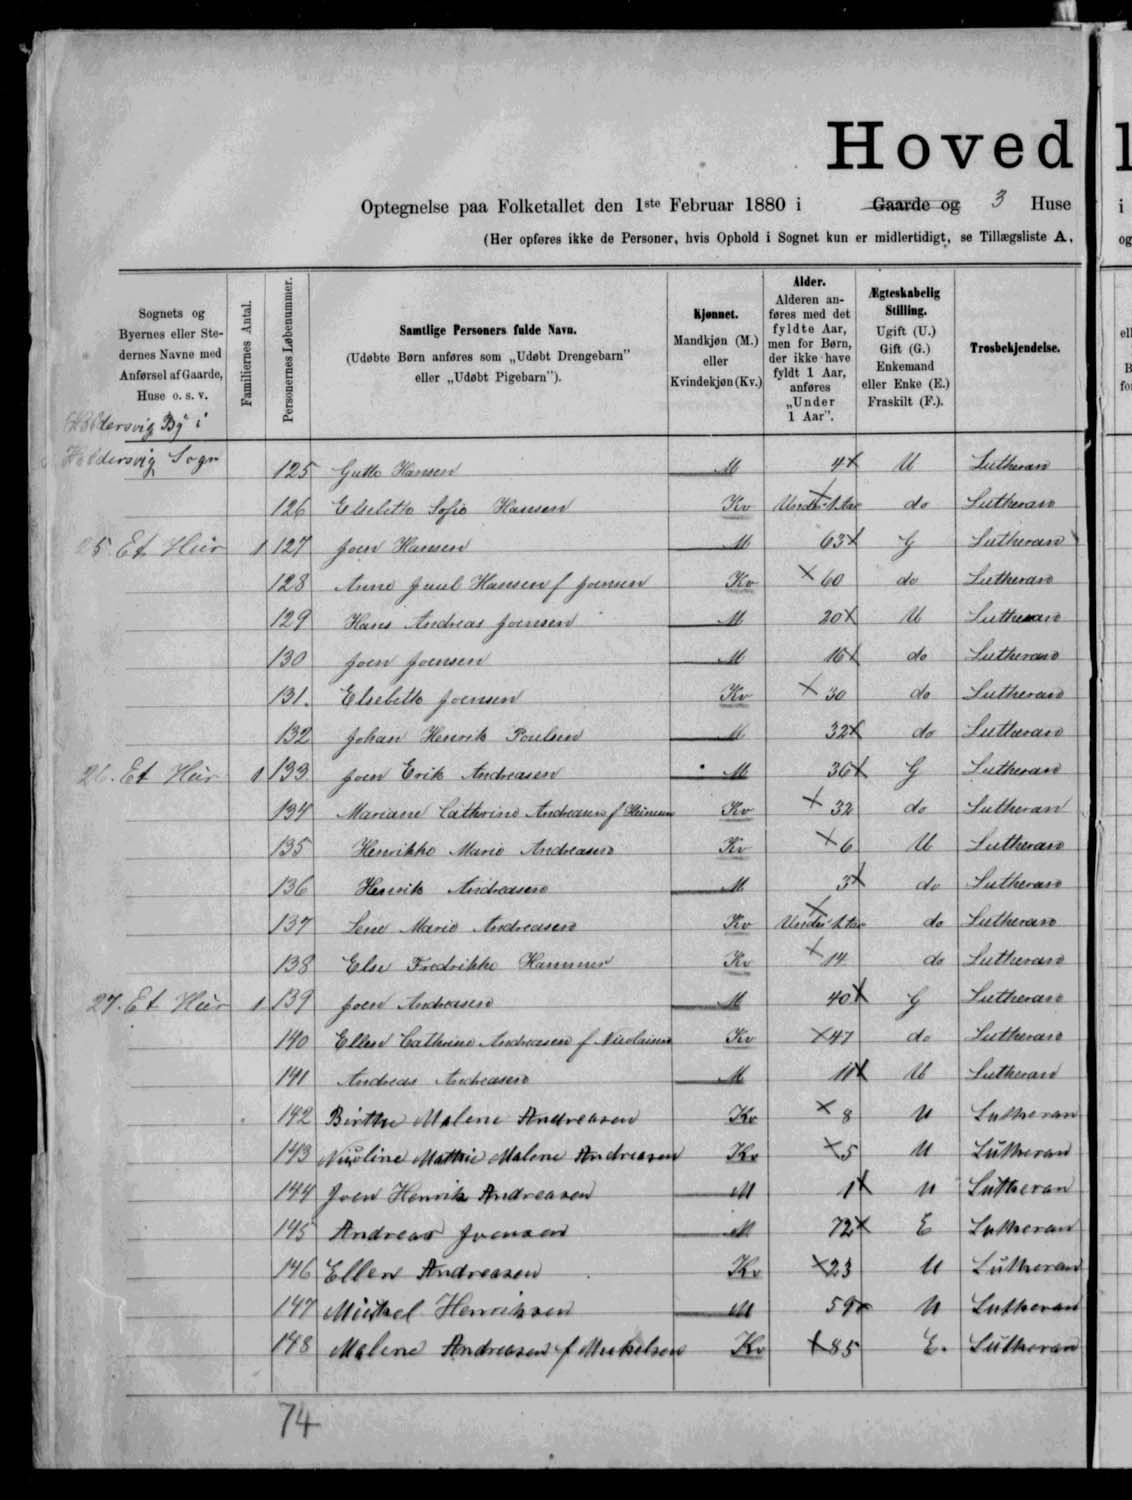 Hoved
Optegnelse paa Folketallet den 1ste Februar 1880 i Gaarde og 3 Huse
(Her opføres ikke de Personer, hvis Ophold i Sognet kun er midlertidigt, se Tillægsliste A,
Sognets og Byernes eller Stedernes Navne med Anførsel af Gaarde, Huse o. s. v.
Familiernes Antal.
Personernes Løbenummer.
Samtlige Personers fulde Navn.
(Udøbte Børn anføres som „Udøbt Drengebarn"
eller „Udøbt Pigebarn").
Kjønnet.
Mandkjøn (M.)
eller
Kvindekjøn (Kv.)
Alder.
Alderen anføres med det fyldte Aar, men for Børn, der ikke have fyldt 1 Aar, anføres „Under 1 Aar".
Ægteskabelig Stilling.
Ugift (U.)
Gift (G.)
Enkemand
eller Enke (E.)
Fraskilt (F.).
Trosbekjendelse.
Haldersvig By i
Haldersvig Sogn
125 Gutto Hansen M 4 U Lutheran
126 Elsebeth Sofie Hansen Kv Under 1 Aar do Lutheran
25. Et Hus 1 127 Joen Hansen M 63 G Lutheran
128 Anne Juul Hansen f Joensen Kv 60 do Lutheran
129 Hans Andreas Joensen M 20 U Lutheran
130 Joen Joensen M 16 do Lutheran
131. Elsebeth Joensen Kv 30 do Lutheran
132 Johan Henrik Poulsen M 32 do Lutheran
26. Et Hus 1 133 Joen Erik Andreasen M 36 G Lutheran
134 Mariane Cathrine Andreasen f Kv 32 do Lutheran
135 Henrikke Marie Andreasen Kv 6 U Lutheran
136 Henrik Andreasen M 3 do Lutheran
137 Lene Marie Andreasen Kv Under 1 Aar do Lutheran
138 Else Fredrikke Hammer Kv 14 do Lutheran
27. Et Hus 1 139 Joen Andreasen M 40 G Lutheran
140 Ellen Cathrine Andreasen f Nicolaisen Kv 47 do Lutheran
141 Andreas Andreasen M 11 U Lutheran
142 Birthe Malene Andreasen Kv 8 U Lutheran
143 Nicoline Mathie Malene Andreasen Kv 5 U Lutheran
144 Joen Henrik Andreasen M 1 U Lutheran
145 Andreas Joensen M 72 E Lutheran
146 Ellen Andreasen Kv 23 U Lutheran
147 Mickel Henriksen M 59 U Lutheran
148 Malene Andreasen f Mickelsen Kv 85 E. Lutheran
74